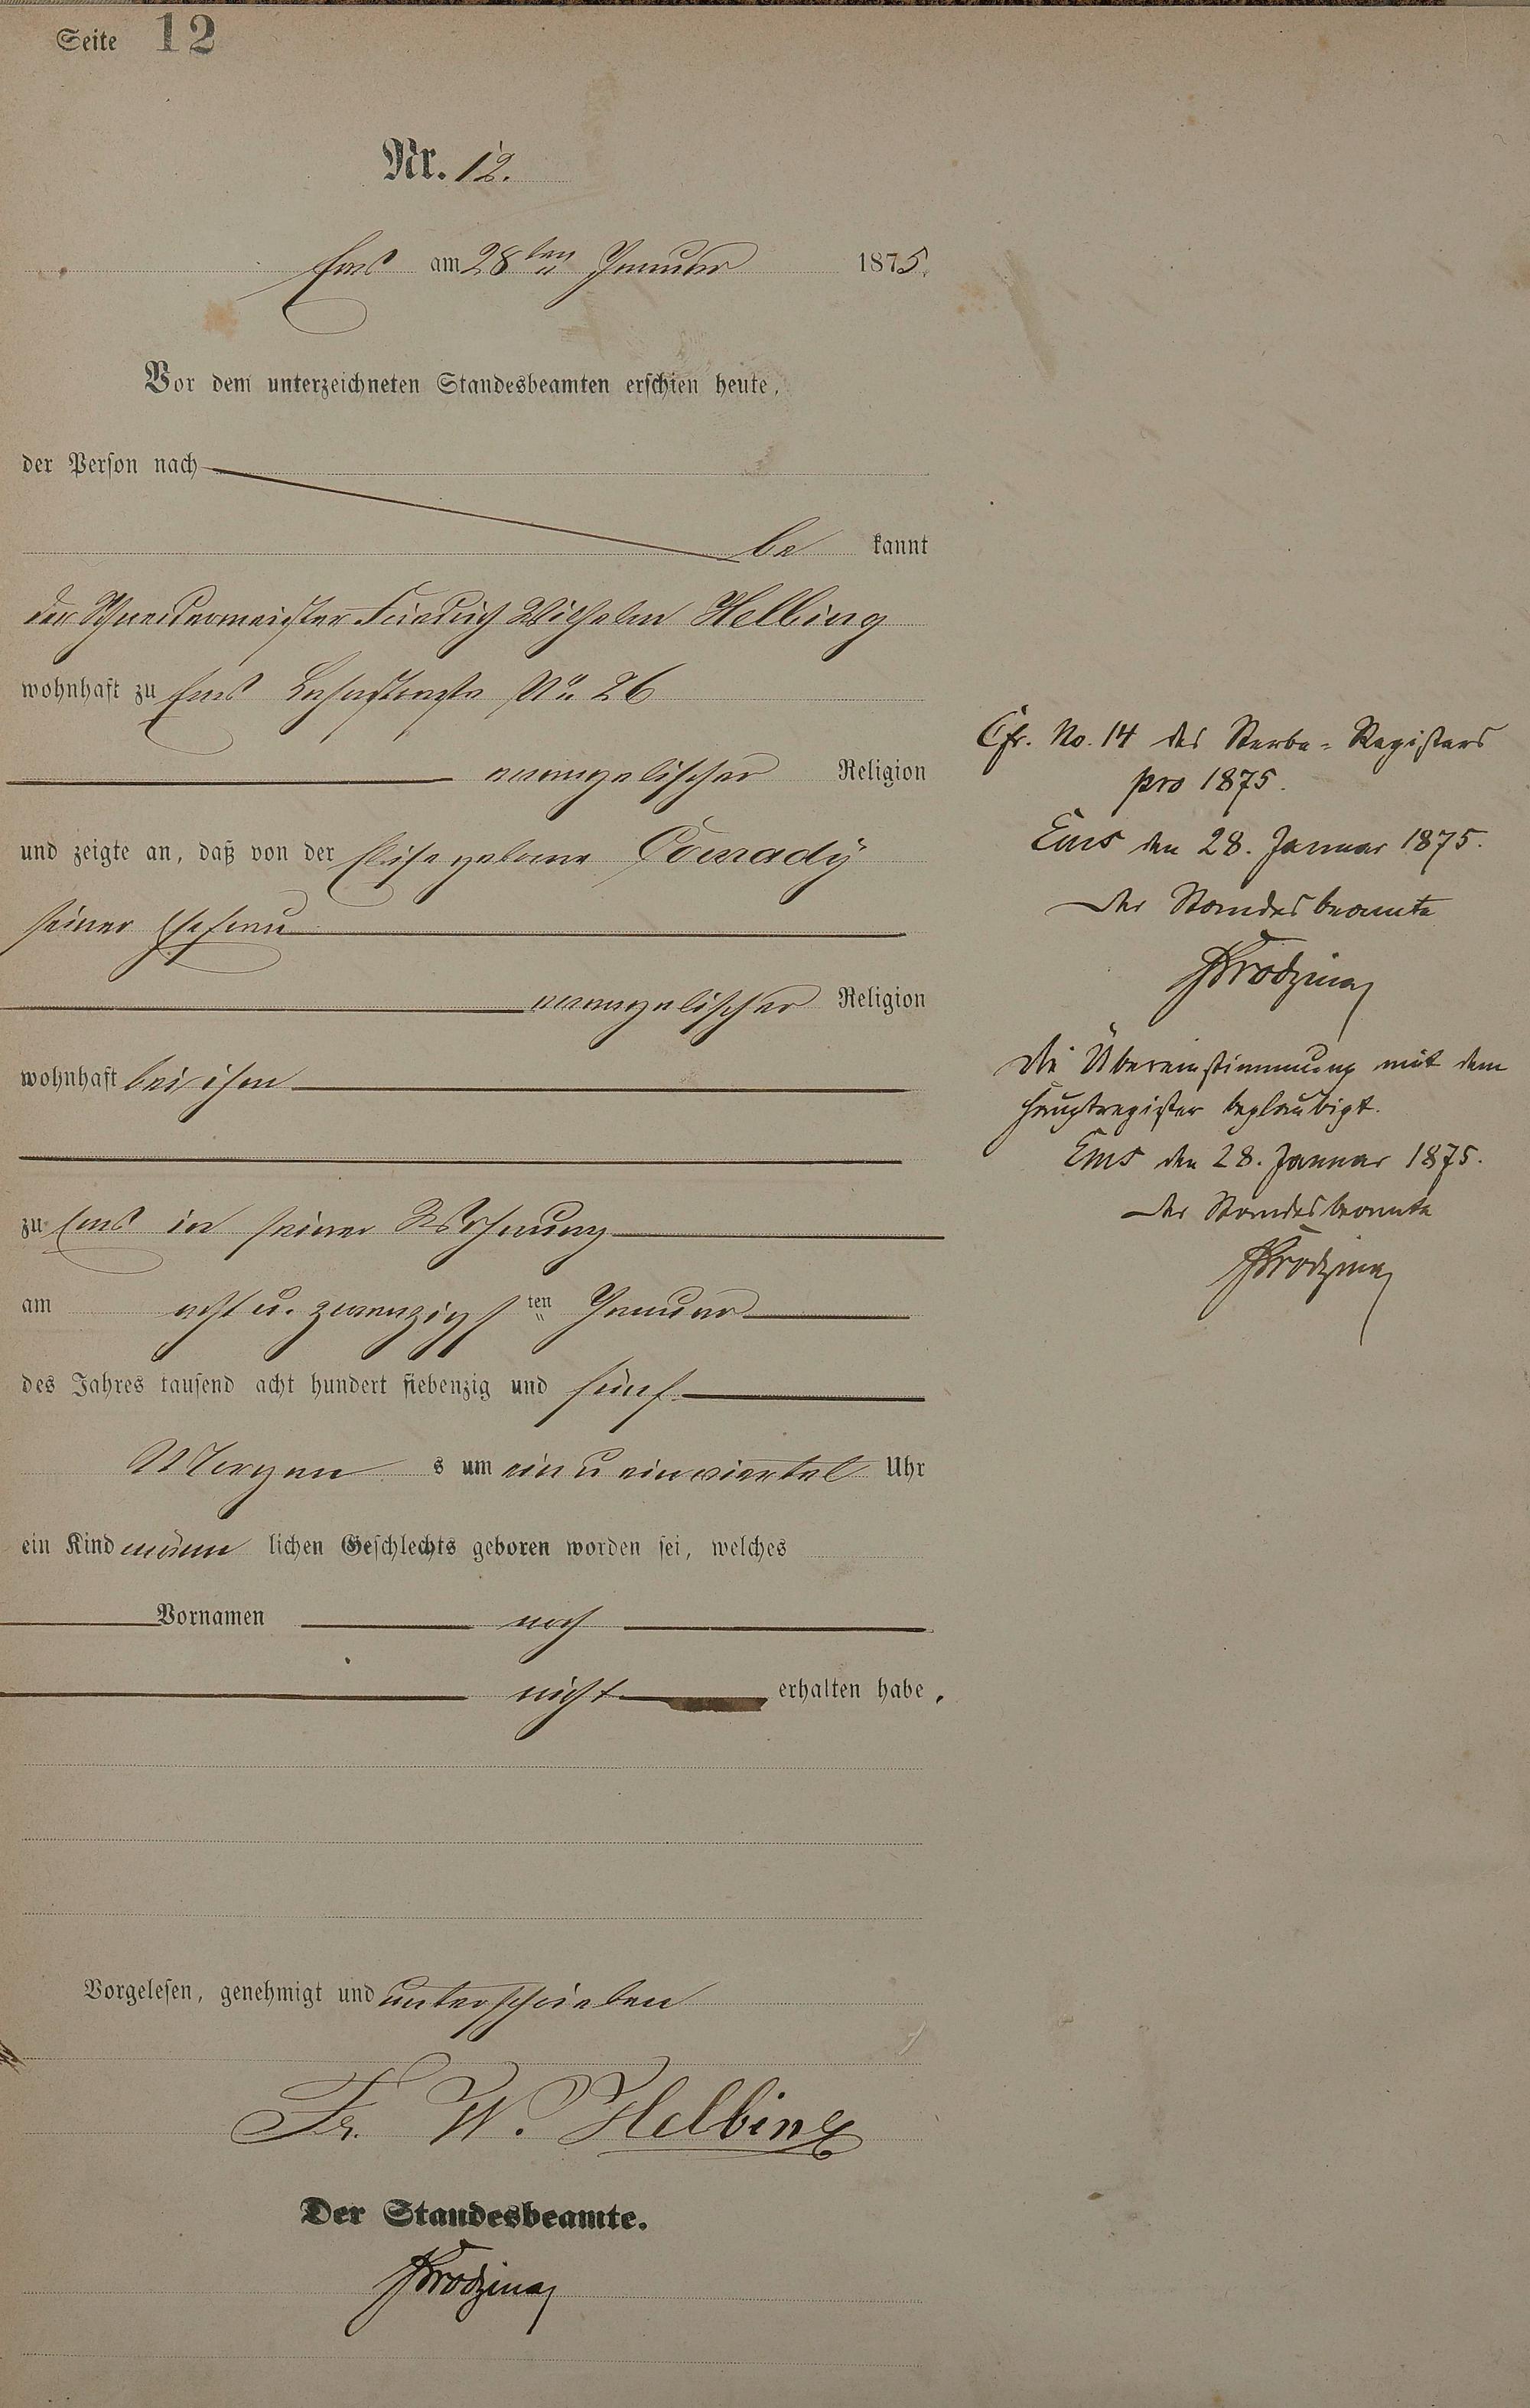 Seite 12
Nr. 12.
Ems am 28ten Januar 1875.
Vor dem unterzeichneten Standesbeamten erschien heute,
der Person nach
be kannt
der Schneidermeister Friedrich Wilhelm Helbing
wohnhaft zu Ems Lahnstraße No 26
evangelischer Religion
und zeigte an, daß von der Elise geborne Conrady
seiner Ehefrau
evangelischer Religion
wohnhaft bei ihm
zu Ems in seiner Wohnung
am acht u. zwanzigsten Januar
des Jahres tausend acht hundert siebenzig und fünf
Morgen s um ein u einviertel Uhr
ein Kind männ lichen Geschlechts geboren worden sei, welches
Vornamen noch
nicht erhalten habe.
Vorgelesen, genehmigt und unterschrieben
Fr. W. Helbing
Der Standesbeamte.
Cfr. No. 14 des Sterbe-Registers
pro 1875.
Ems den 28. Januar 1875.
Der Standesbeamte
Die Übereinstimmung mit dem
Hauptregister beglaubigt.
Ems den 28. Januar 1875.
Der Standesbeamte